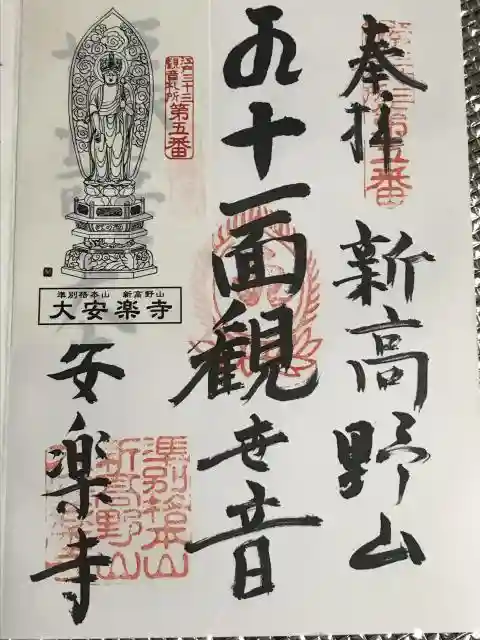 奉拝
新高野山
十一面観世音
江戸三十三
観音札所
第五番
準別格本山 新高野山
大安楽寺
安楽寺
準別格本山
新高野山